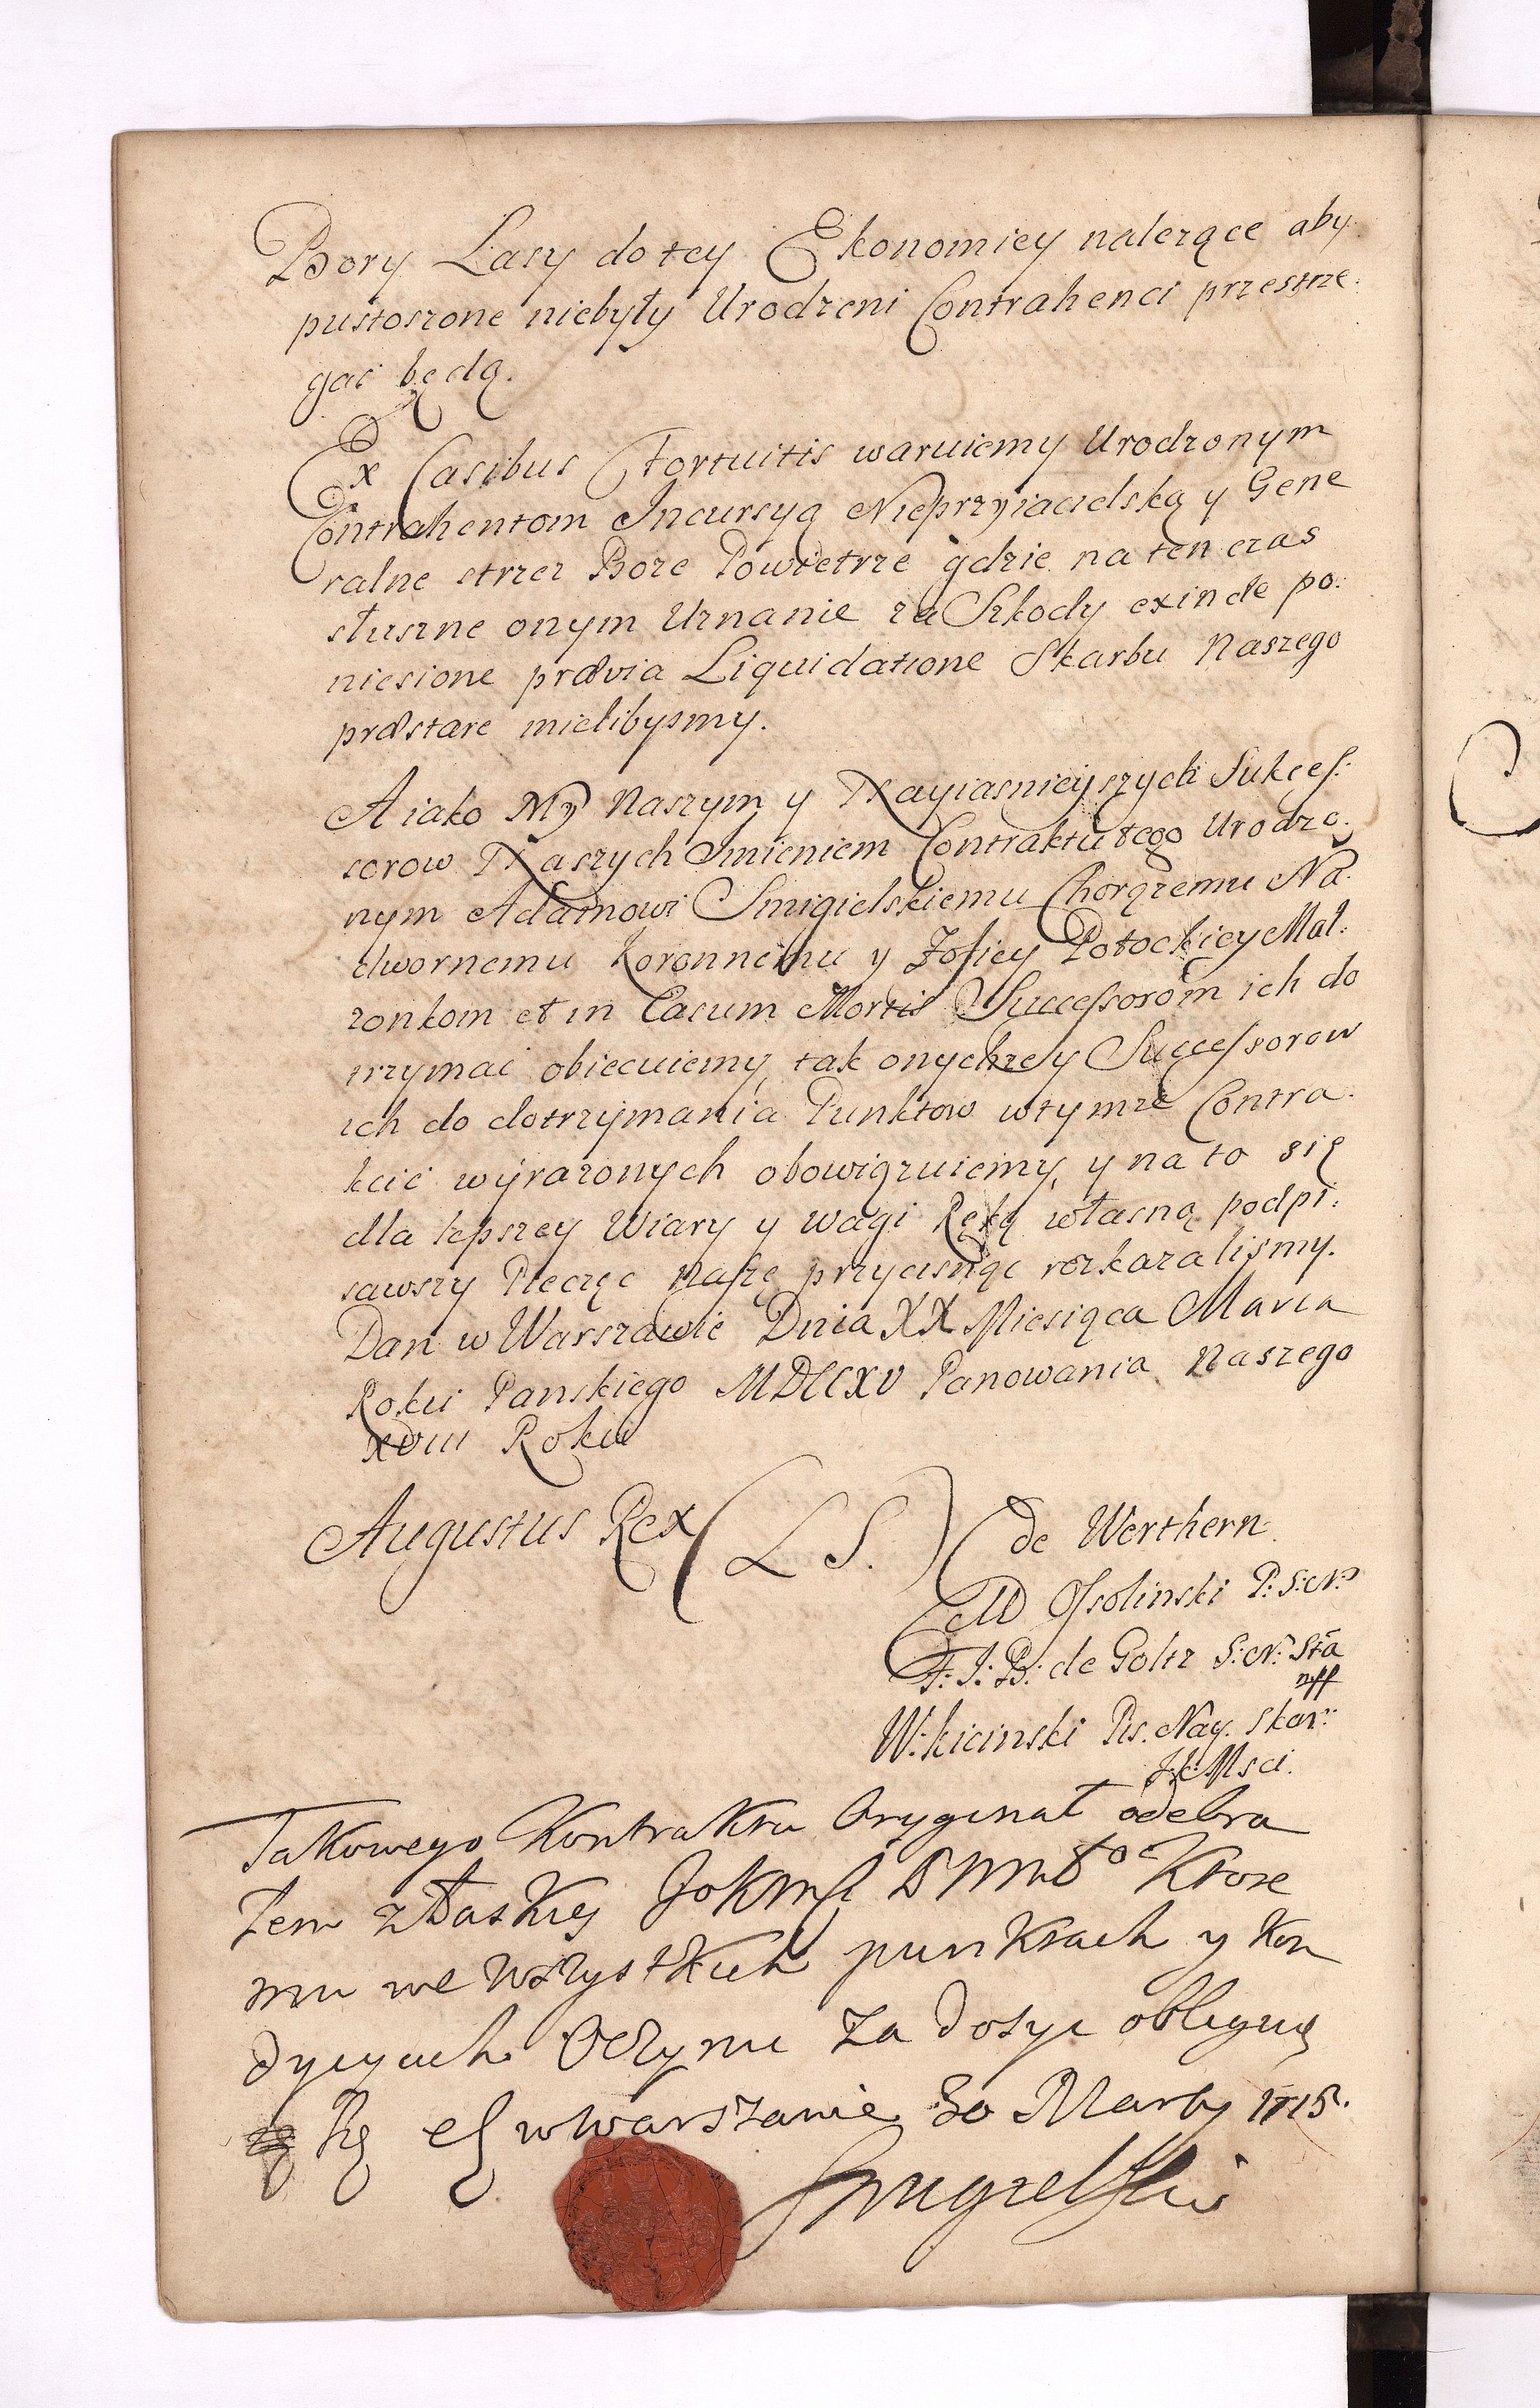 Bory Lasy do tey Ekonomiey nalezące aby
pustoszone niebyły Urodzeni Contrahenci przestrze:
gać będą.
Ex Casibus Fortuitis waruiemy Urodzonym
Contrahentom Incursyą Nieprzyiacielską y Gene
ralne strzez Boze Powietrze gdzie na ten czas
słuszne onym Uznanie za Szkody exinde po:
niesione prævia Liquidatione Skarbu Naszego
præstare mielibysmy.
A iako My Naszym y Nayiasnieyszych Sukces:
sorow Naszych Imieniem Contraktu tego Urodzo:
nym Adamowi Smigielskiemu Chorązemu Na:
dwornemu Koronnemu y Zofiey Potockiey Mał:
zonkom et in Casum Mortis Successorom ich do
trzymać obiecuiemy, tak onychze y Successorow
ich do dotrzymania Punktow w tymze Contra:
kcie wyrazonych obowiązuiemy, y na to się
dla lepszey Wiary y wagi Ręką własną podpi:
sawszy Pieczęc naszę przycisnąc rozkazalismy.
Dan w Warszawie Dnia XX Miesiąca Marca
Roku Panskiego MDCCXV Panowania Naszego
XVIII Roku
Augustus Rex (L S.) de Werthern
M Ossolinski P: S: N:
F: J: B: de Goltz S: N: Sta
mpp
W: kicinski Pis. Nay. Skar:
J: K: Msci.
Takowego Kontraktu Oryginał odebra
łem z Łaski JoKMsci Ktore
mu we wszystkich punktach y kon
dycyach Uczynic za dosyc obliguię
się w Warszawie 30 Marty 1715.
Smigielski